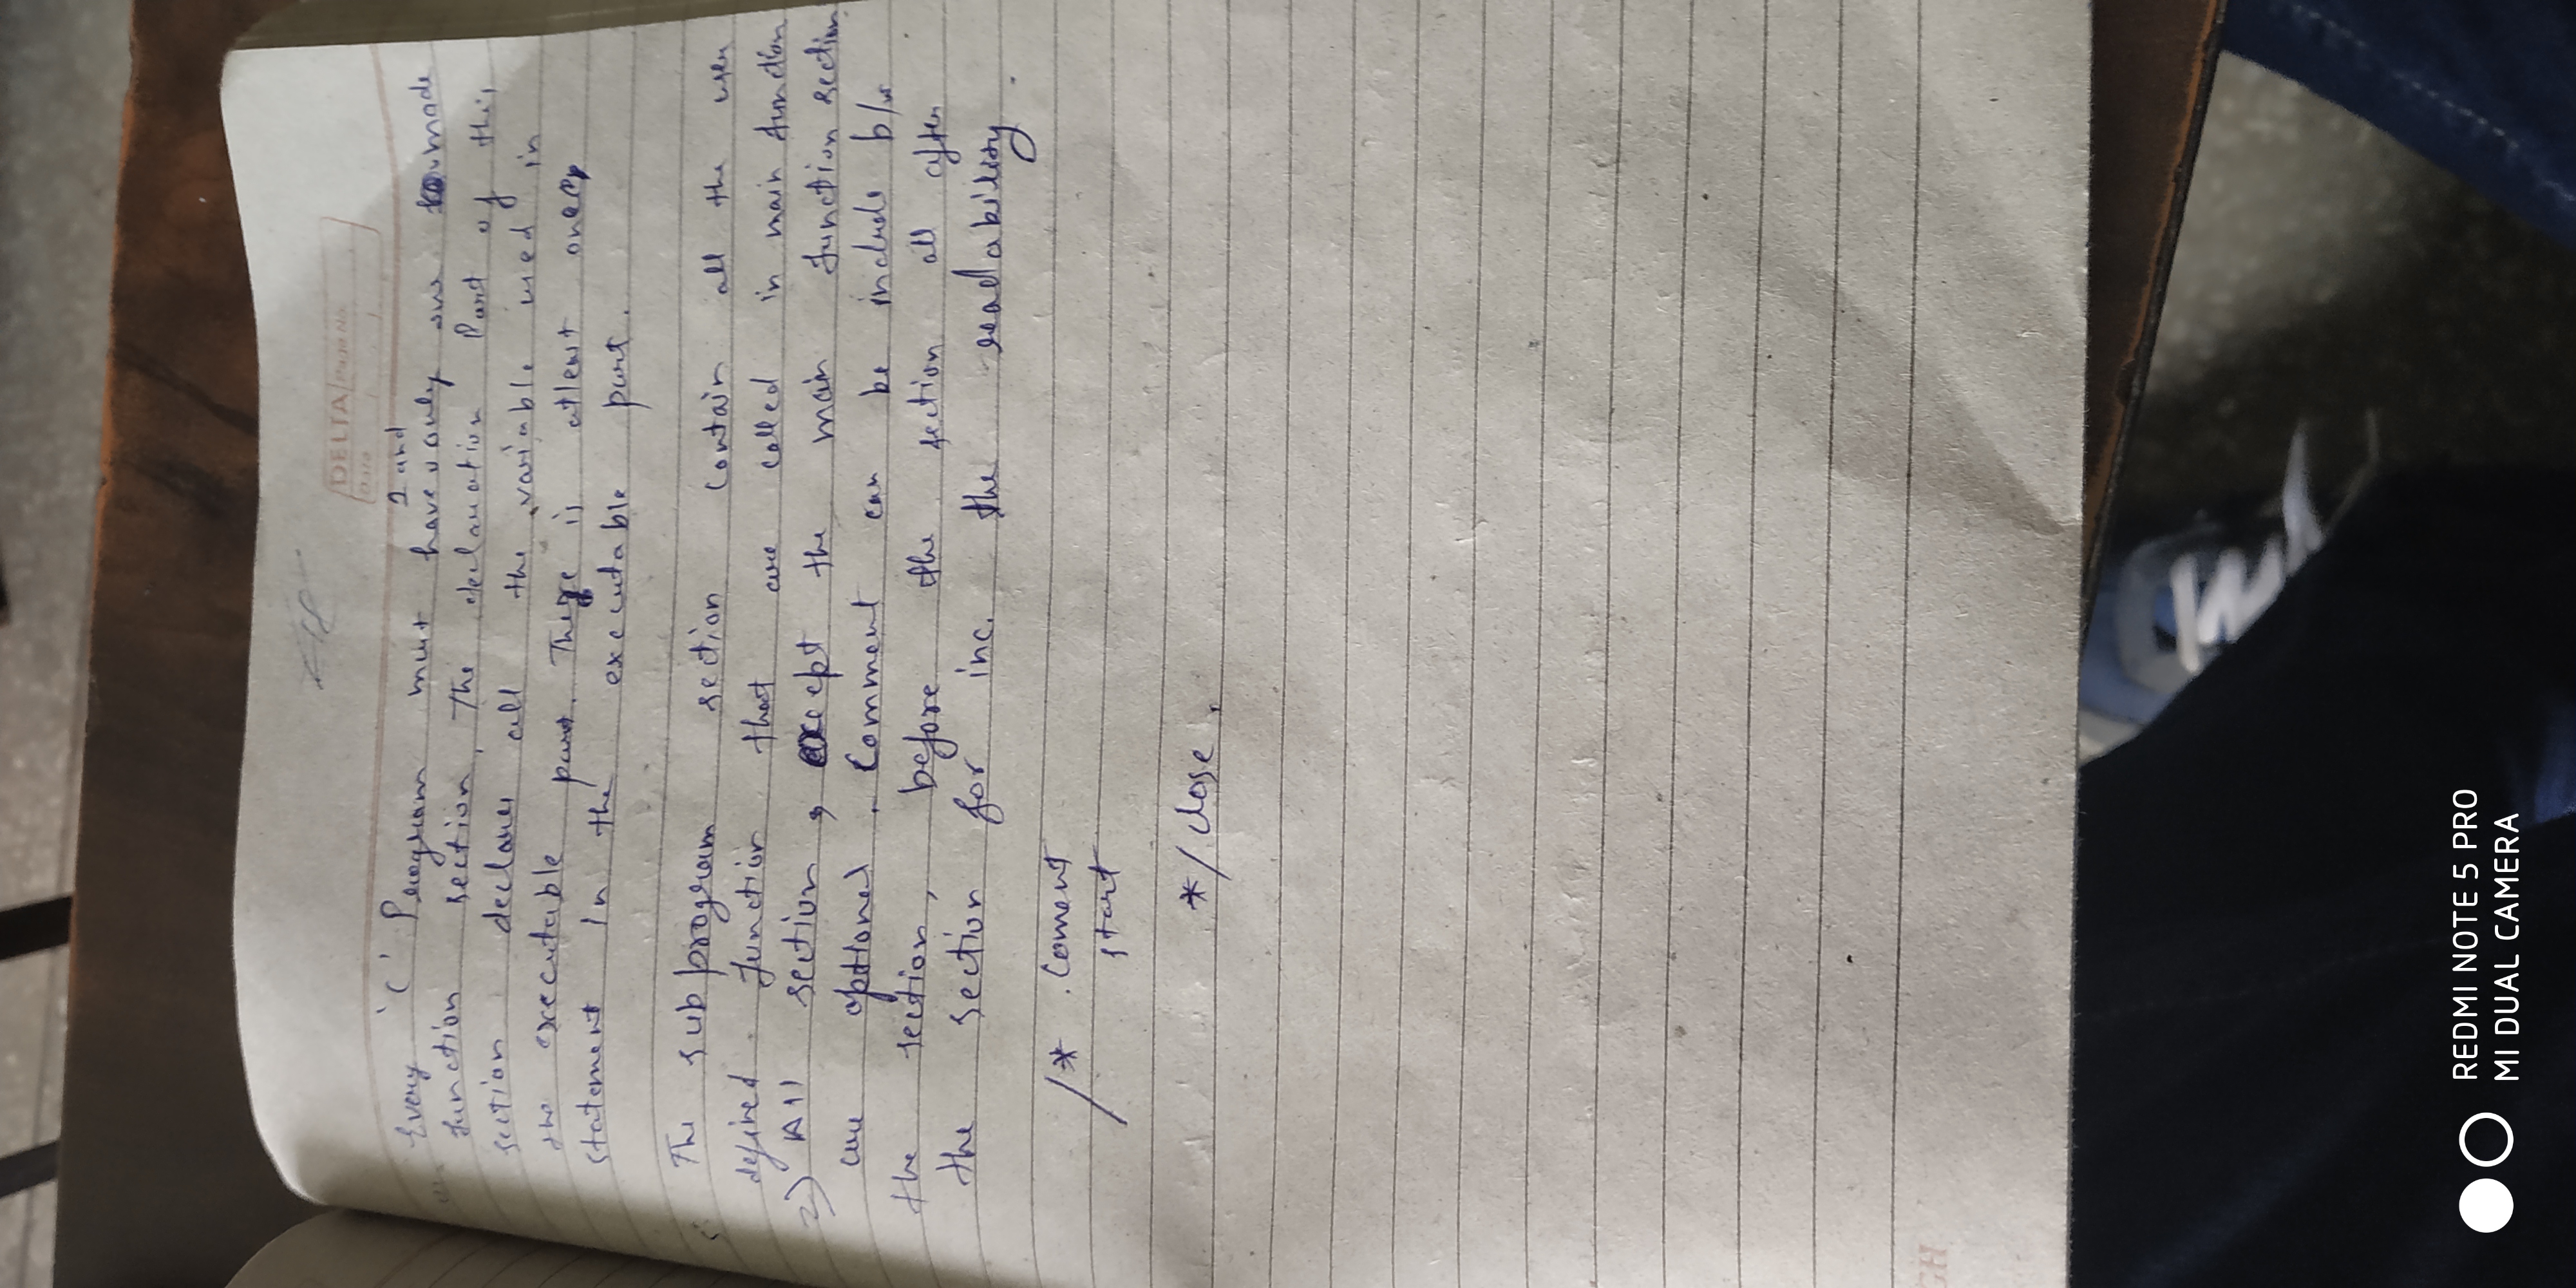 DELTA Page No.
Date
1 and
Every 'C' Program must have only one made
function section, The declaration Part of this
section declares all the variable used in
the executable part. There is atleast one
statement In the executable part.
The sub program section contain all the user
defined function that are called in main function
=) All section, except the main function section
are optional. Comment can be include b/w
the section, before the section all after
the section for inc. the readability.
/* .Coment
start
*/ close.
REDMI NOTE 5 PRO
MI DUAL CAMERA